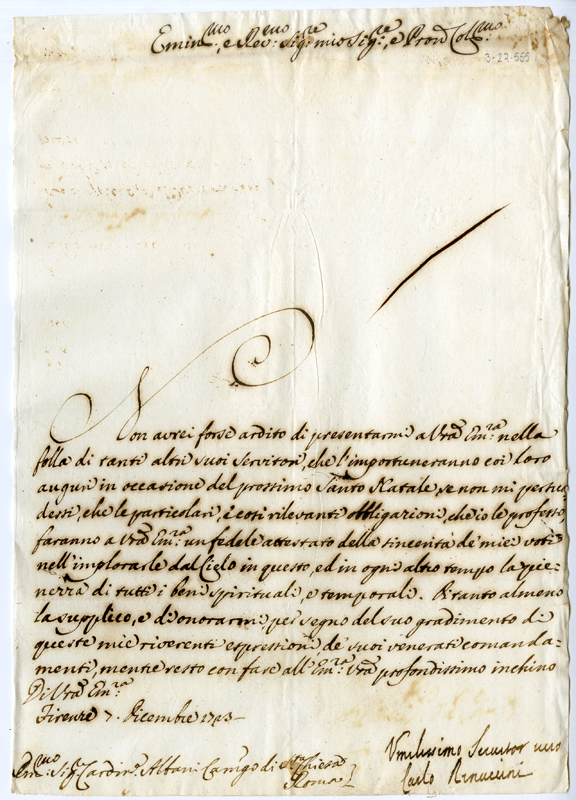 Emin.mo, e Rev.mo Sig.re mio Sig.re, e Pron Col.mo
3-27-555
Non avrei forse ardito di presentarmi a Vra Em.ra nella
folla di tanti altri suoi servitori, che l'importuneranno coi loro
auguri in occasione del prossimo Santo Natale, se non mi persua
dessi, che le particolari, e così rilevanti obbligazioni, che io le professo
faranno a Vra Em.ra un fedele attestato della sincerità de' miei voti
nell'implorarle dal Cielo in questo, ed in ogni altro tempo la pie-
nezza di tutti i beni spirituali, e temporali. Di tanto almeno
la supplico, e di onorarmi, per segno del suo gradimento di
queste mie riverenti espressioni de' suoi venerati comanda-
menti, mentre resto con fare all'Em.ra Vra profondissimo inchino
Di Vra Em.ra
Firenze 7. Dicembre 1723
Em.mo Sig. Card. Albani Cam.go di S.ta Chiesa
Roma
Umilissimo Servitor vero
Carlo Rinuccini